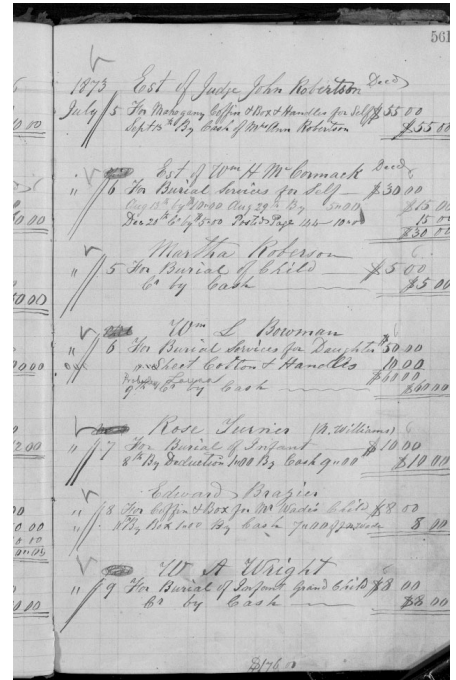 561
1873 Est of Judge John Robertson Decd
July 5 For Mahogany Coffin & Box & Handles for Self $55 00
Sept 13th By Cash of Mrs Ann Robertson $55 00
Est of Wm H McCormack Decd
" 6 For Burial Services for Self $30 00
Aug 13th by $10.00 Aug 29th By 5.00 $15 00
Dec 20th Cr by $5.00 Page 10.00 15 00
$30 00
Martha Roberson
" 5 For Burial of Child $5 00
Cr by Cash $5 00
Wm L Bowman
" 6 For Burial Services for Daughter $50 00
Sheet Cotton & Handles 10.00
$60 00
9th Cr by Cash $60 00
Rose Turner (N. Williams)
" 7 For Burial of Infant $10.00
8th By Deduction 1.00 By Cash 9.00 $10 00
Edward Brazier
" 8 For Coffin & Box for Mr Wades Child $8 00
By Box 1.00 By Cash 7.00 8 00
W A Wright
" 9 For Burial of Infant Grand Child $8 00
Cr by Cash $8 00
$176.00